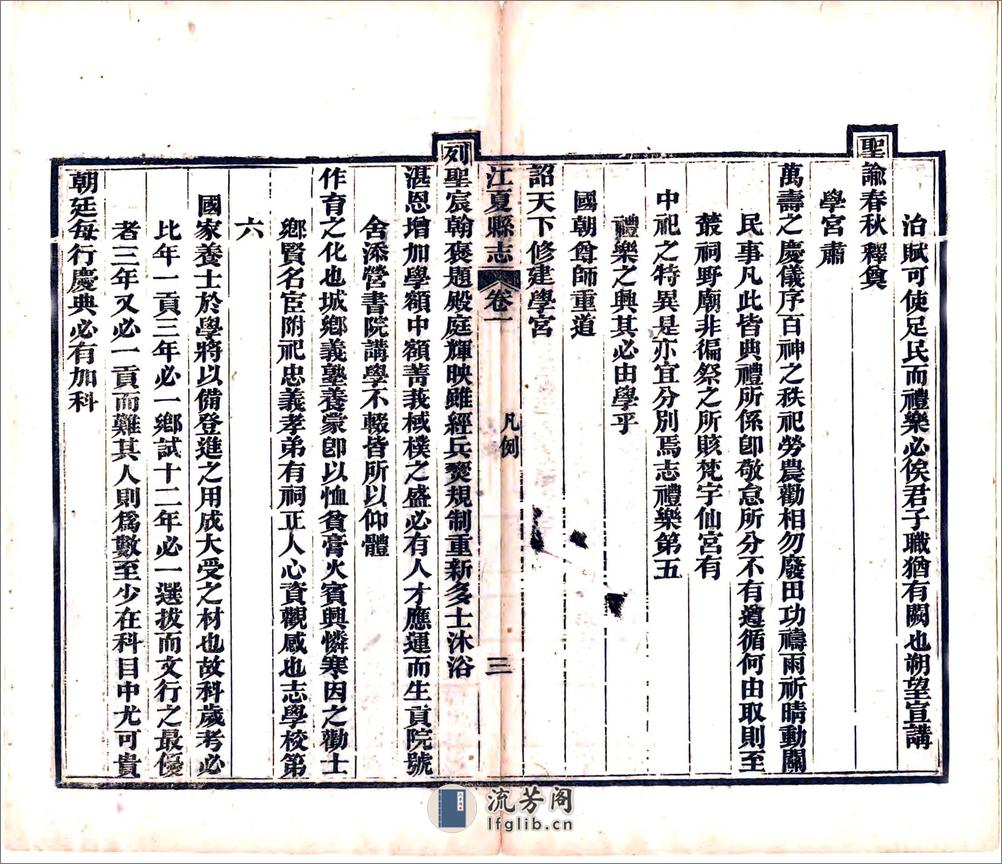 治賦可使足民而禮樂必俟君子職猶有闕也朔望宣講
聖諭春秋釋奠
學宮肅
萬壽之慶儀序百神之秩祀勞農勸相勿廢田功禱雨祈晴動關
民事凡此皆典禮所係卽敬怠所分不有遵循何由取則至
叢祠野廟非徧祭之所賅梵宇仙宮有
中祀之特異是亦宜分別焉志禮樂第五
禮樂之興其必由學乎
國朝尊師重道
詔天下修建學宮
江夏縣志 卷一 凡例 三
列聖宸翰褒題殿庭輝映雖經兵燹規制重新多士沐浴
湛恩增加學額中額菁莪棫樸之盛必有人才應運而生貢院號
舍添營書院講學不輟皆所以仰體
作育之化也城鄉義塾養蒙卽以恤貧膏火賓興憐寒因之勸士
鄉賢名宦附祀忠義孝弟有祠正人心資觀感也志學校第
六
國家養士於學將以備登進之用成大受之材也故科歲考必
比年一貢三年必一鄉試十二年必一選拔而文行之最優
者三年又必一貢而難其人則爲數至少在科目中尤可貴
朝廷每行慶典必有加科
流芳阁
lfglib.cn